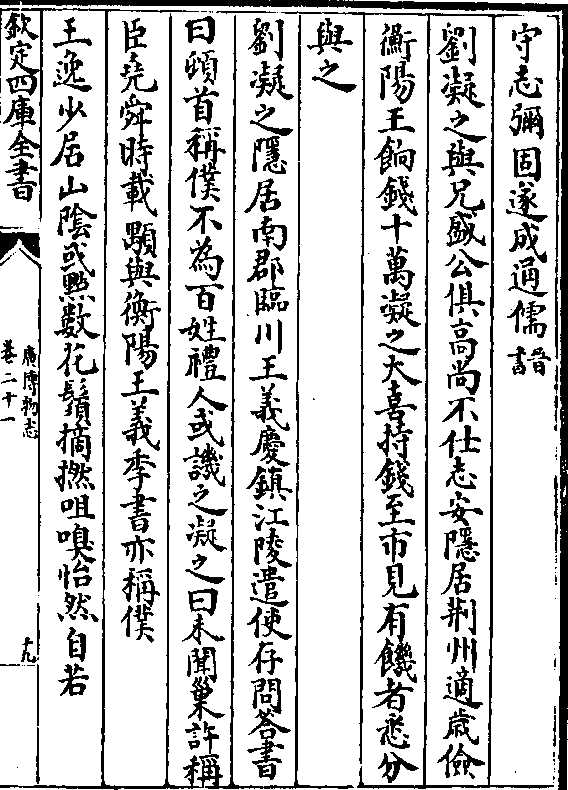 守志彌固遂成通儒晉書
劉凝之與兄盛公俱高尚不仕志安隱居荆州適歲儉
衡陽王餉錢十萬凝之大喜持錢至市見有饑者悉分
與之
劉凝之隱居南郡臨川王義慶鎮江陵遣使存問答書
曰頓首稱僕不為百姓禮人或譏之凝之曰未聞巢許稱
臣堯舜時載顒與衡陽王義季書亦稱僕
王逸少居山陰或㸃数花鬚摘撚咀嗅怡然自若
欽定四庫全書
廣博物志
卷二十一
十九